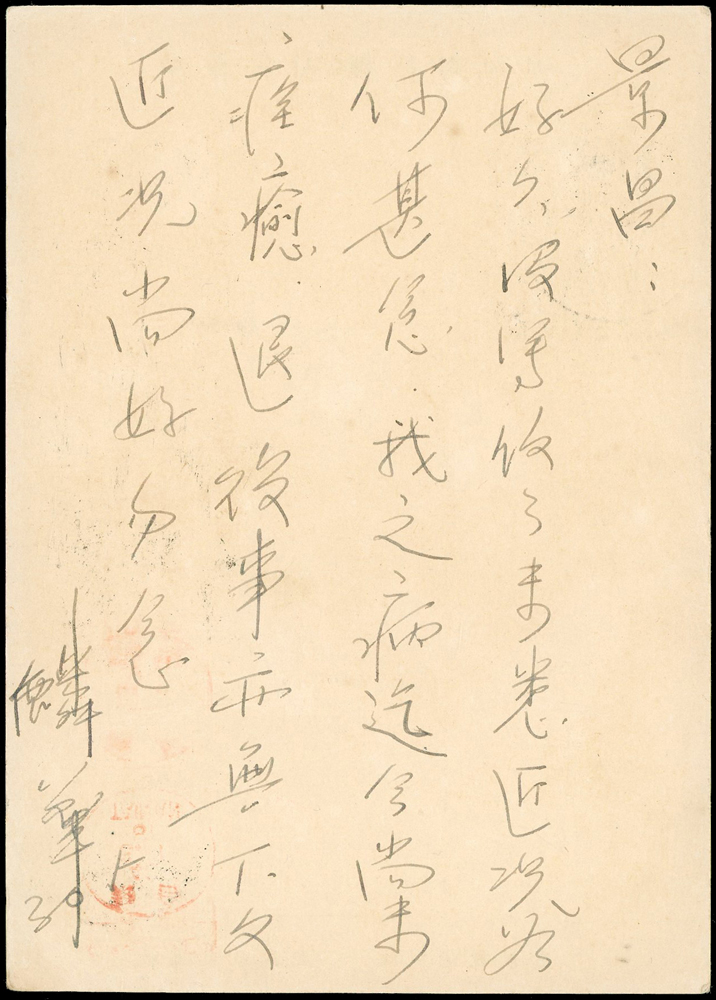 景昌：
好久沒得收了未悉近況如
何甚念．我之病迄今尚未
痊癒．退役事亦無下文
近況尚好勿念
麟華上